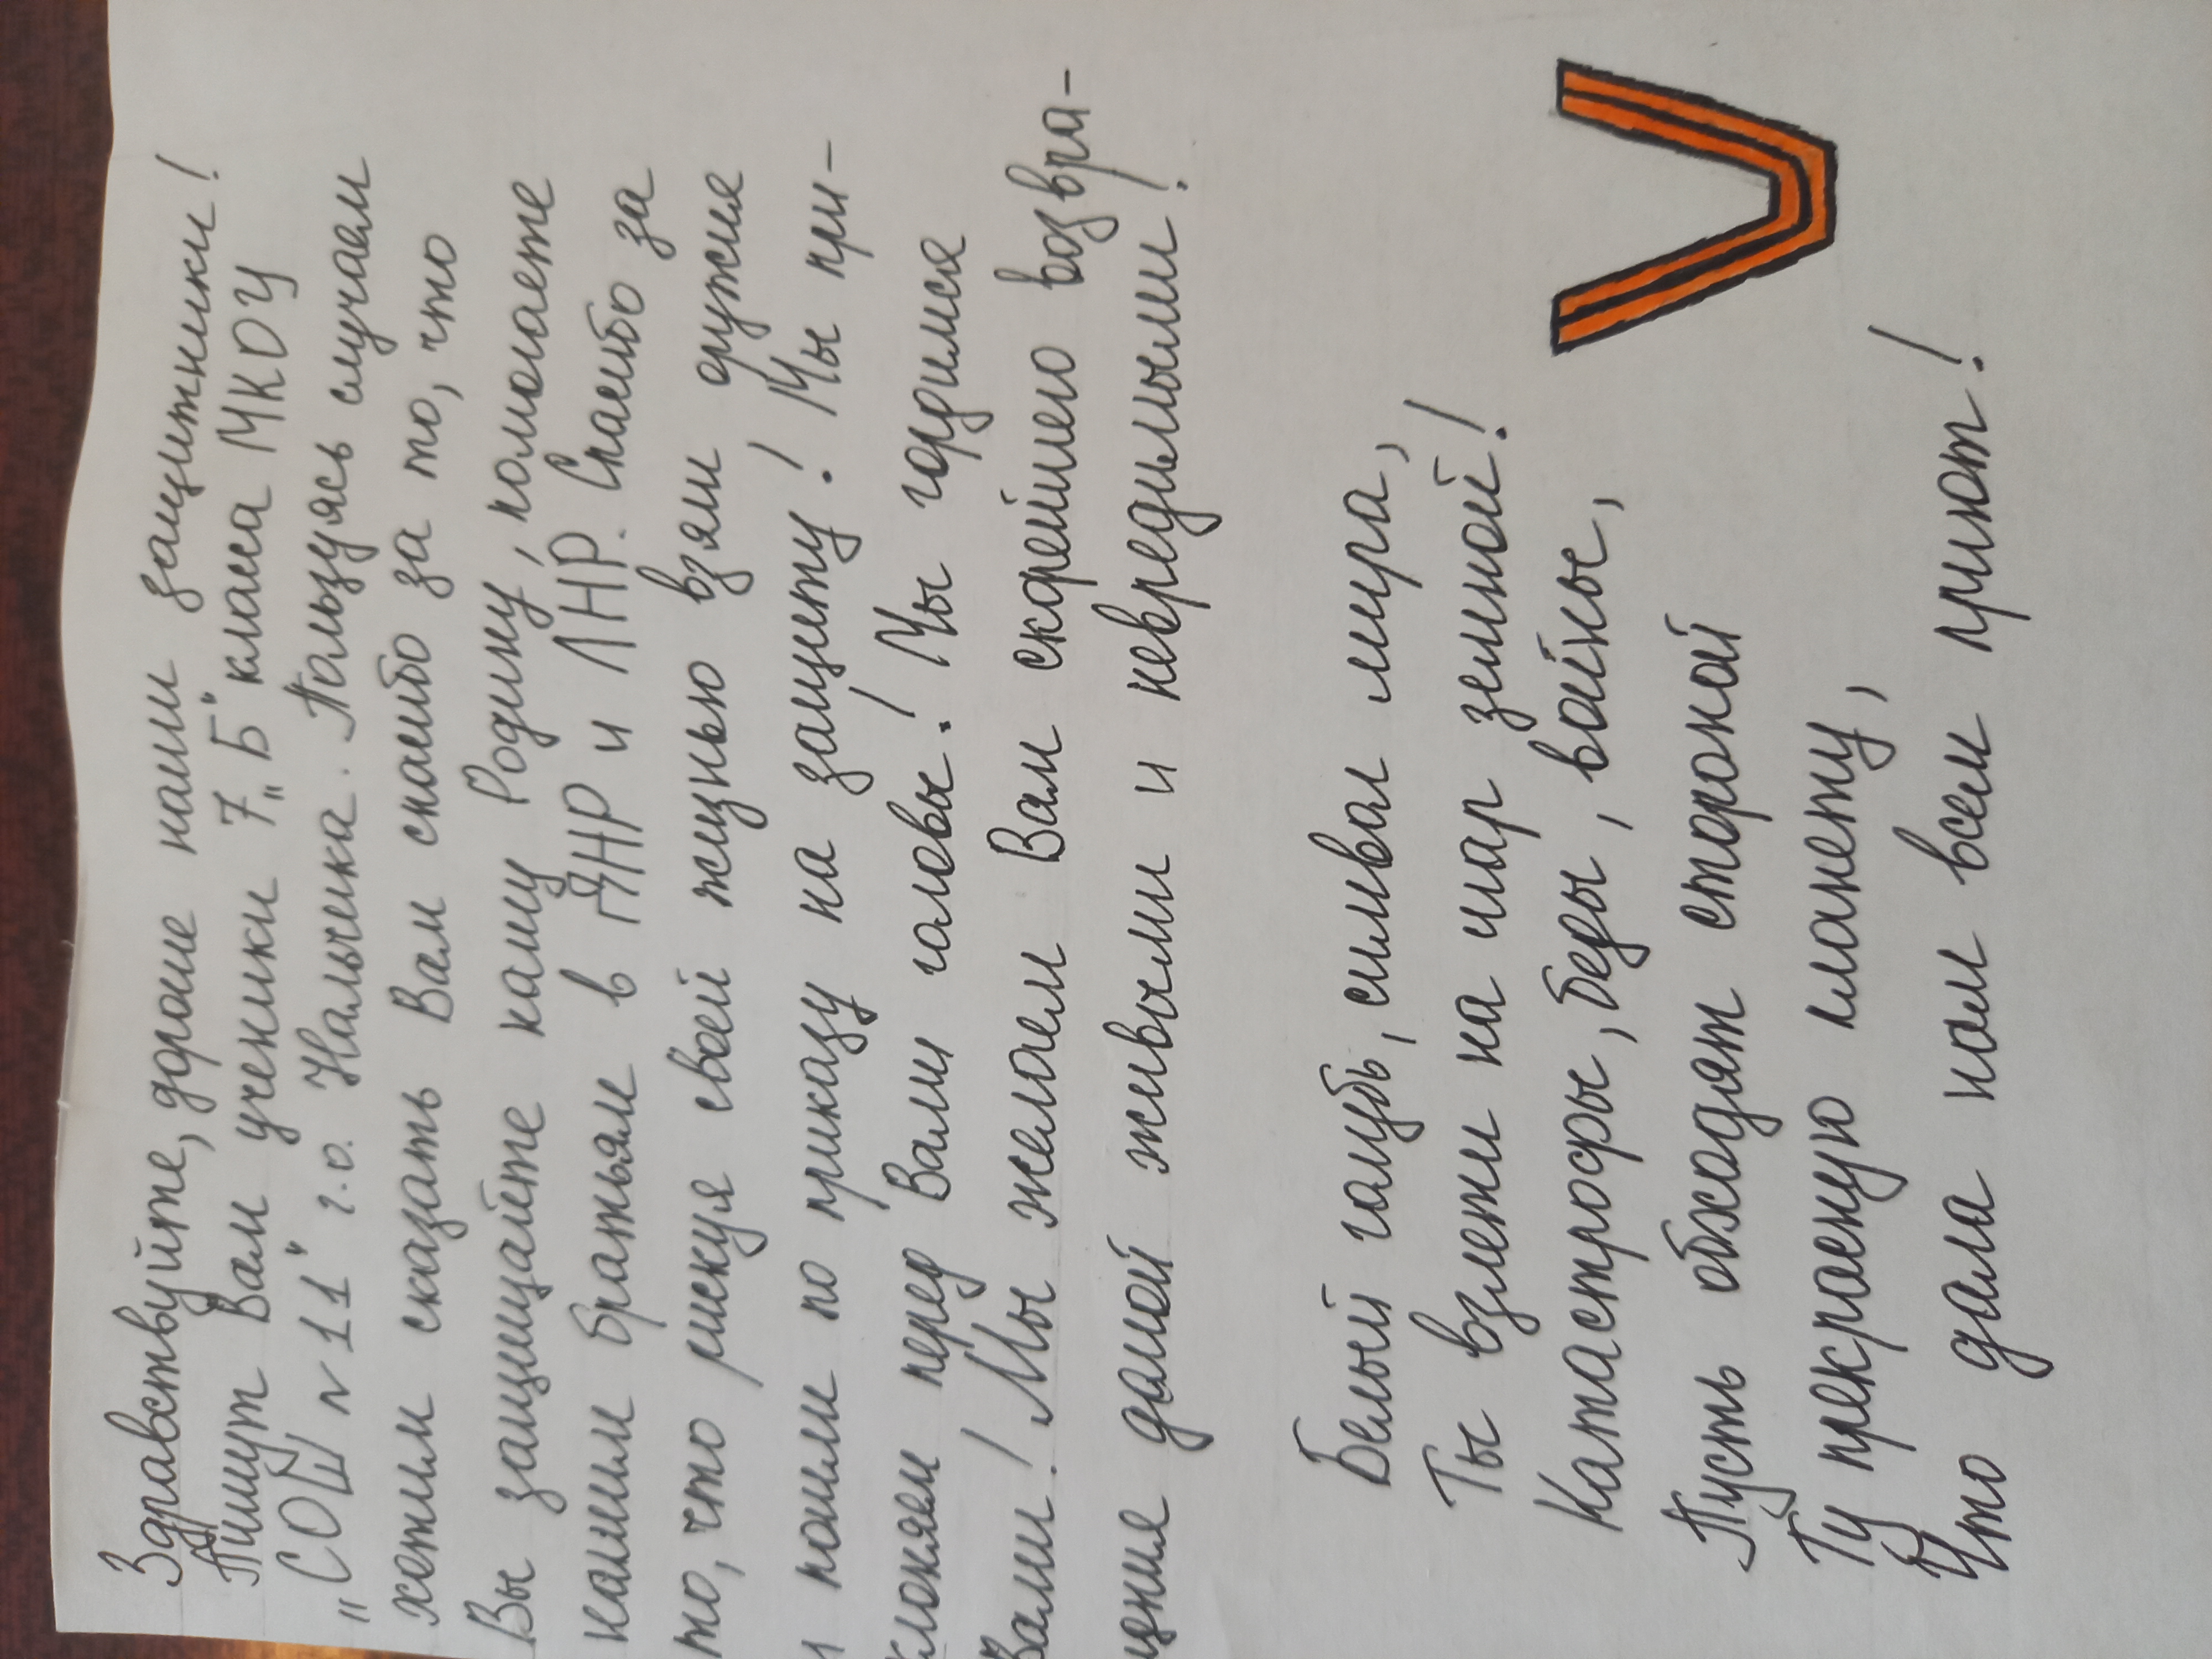 Здравствуйте, дорогие наши защитники!
Пишут Вам ученики 7 „Б" класса МКОУ
„СОШ №11" г.о. Нальчика. Пользуясь случаем
хотим сказать Вам спасибо за то, что
Вы защищайте нашу Родину, помогаете
нашим братьям в ДНР и ЛНР. Спасибо за
то, что рискуя своей жизнью взяли оружие
и пошли по приказу на защиту! Мы при-
клоняем перед Вами головы! Мы гордимся
Вами! Мы желаем Вам скорейшего возвра-
щения домой живыми и невредимыми!
Белый голубь, символ мира,
Ты взлети на шар земной!
Катастрофы, беды, войны,
Пусть обходят стороной
Ту прекрасную планету,
Что дала нам всем приют!
V